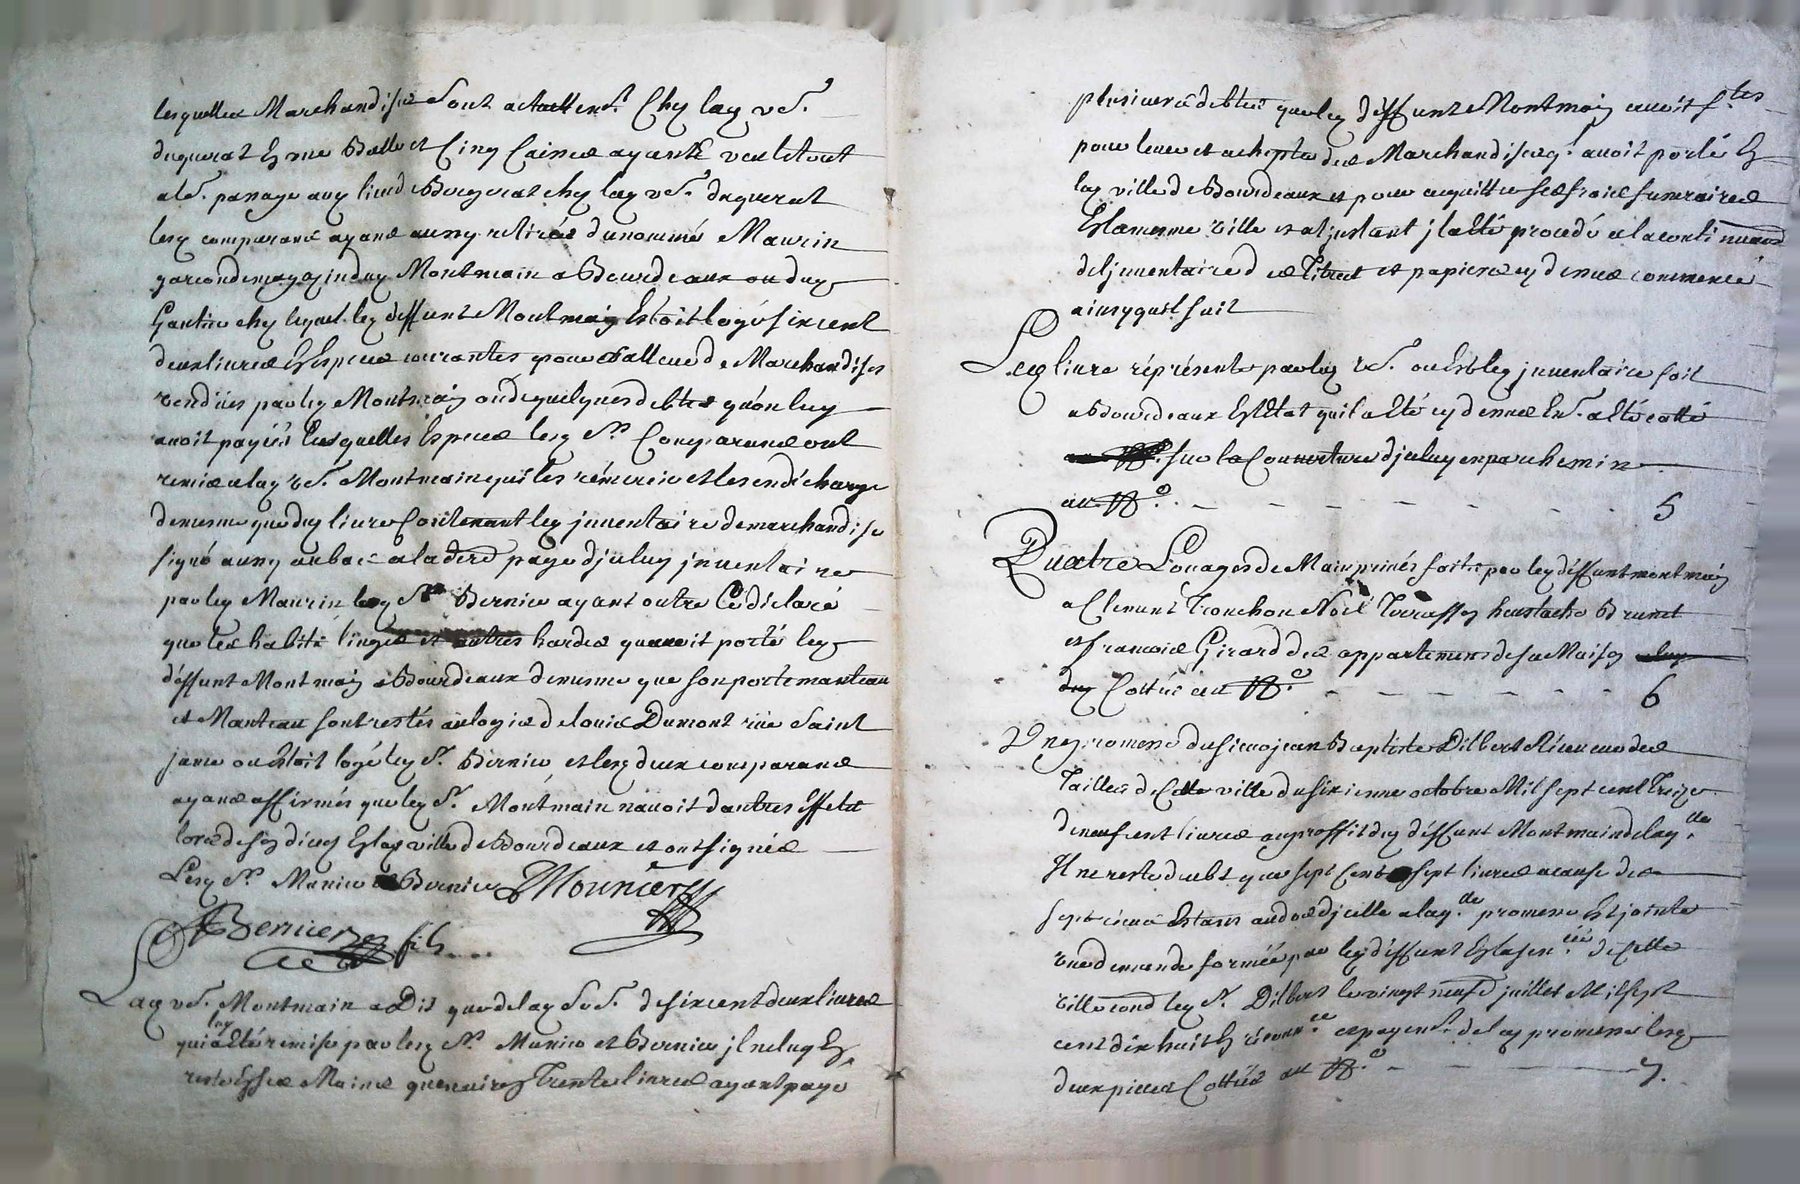 lesquelles Marchandises sont actuellem.t Chez lad. v.e
duquerat En une Balle et Cinq Caisses ayants
passage au lieu de Bergerat chez lad. v.e duquerat
lesd. comparans ayans aussy retirés du nommé Maurin
garcon de magazin dud. Montmain a Bourdeaux ou dud.
Gautier chez lequel led. deffunt Montmain Estoit logé six cent
deux livres En Especes courantes pour valleur de Marchandises
vendües par led. Montmain ou de quelques debtes qu'on luy
avoit payées Lesquelles Especes lesd. S.rs Comparans ont
remis a lad. v.e Montmain qui les remercie et les en décharge
de mesme que du livre Contenant led. jnventaire de marchandise
signé aussy au bas a la derre page d'jceluy jnventaire
par led. Maurin lesd. S.rs Bernier ayant outre Ce déclaré
que les habits linges et autres hardes qu'avoit porté led.
déffunt Montmain a Bourdeaux de mesme que son portemanteau
et Manteau sont restés au logis de Louis Dumont rüe Saint
jame ou Estoit logé led. S.r Bernier et lesd. deux comparans
ayans affirmés que led. S.r Montmain n'avoit d'autres Effets
lors de son déces En lad. ville de Bourdeaux et ont signés
Lesd. S.rs Munier et Bernier Mounier
Bernier fils
Lad. v.e Montmain a Dit que de lad. So.e de six cent deux livres
qui luy a Eté remise par lesd. S.rs Munier et Bernier jl ne luy En
reste Esses Mains qu'environ Trente livres ayant payé
plusieurs debtes que led. déffunt Montmain avoit f.tes
pour leur et achepter des Marchandises q.l avoit porté En
lad. ville de Bourdeaux et pour acquitter ses frais funeraires
En la mesme ville et a l'jnstant jl a Eté procedé a la continuaon
de l'jnventaire des Titres et papiers cy dessus commencé
ainsy qu'il suit
Led. livre réprésenté par lad. v.e ou Est led. jnventaire fait
a Bourdeaux En l'Etat qu'il a Eté cy dessus En.é a Eté cotté
sur la Couverture d'jceluy en parchemin
au N.o 5
Quatre Louages de Main privés faits par led. déffunt montmain
a Clement Tronchon Noël Terrasson heustache Brunet
et francois Girard des appartemens de sa Maison
Cottés au N.o 6
Une promesse du sieur jean Baptiste Dilbert Réceveur des
Tailles de Cette ville du sixienne octobre Mil sept cent Treize
de neuf cent livres au proffit dud. déffunt Montmain de laq.lle
Il ne reste deubt que sept Cent sept livres a cause des
receus Estans au dos d'jcelle a laq.lle promesse Est jointe
une demande formée par led. déffunt En la sen.cée de Cette
ville contre led. S.r Dilbert le vingt neuf juillet Mil sept
cent dix huit En reconn.ce et payem.t de lad. promesse lesd.
deux pieces Cottées au N.o 7.